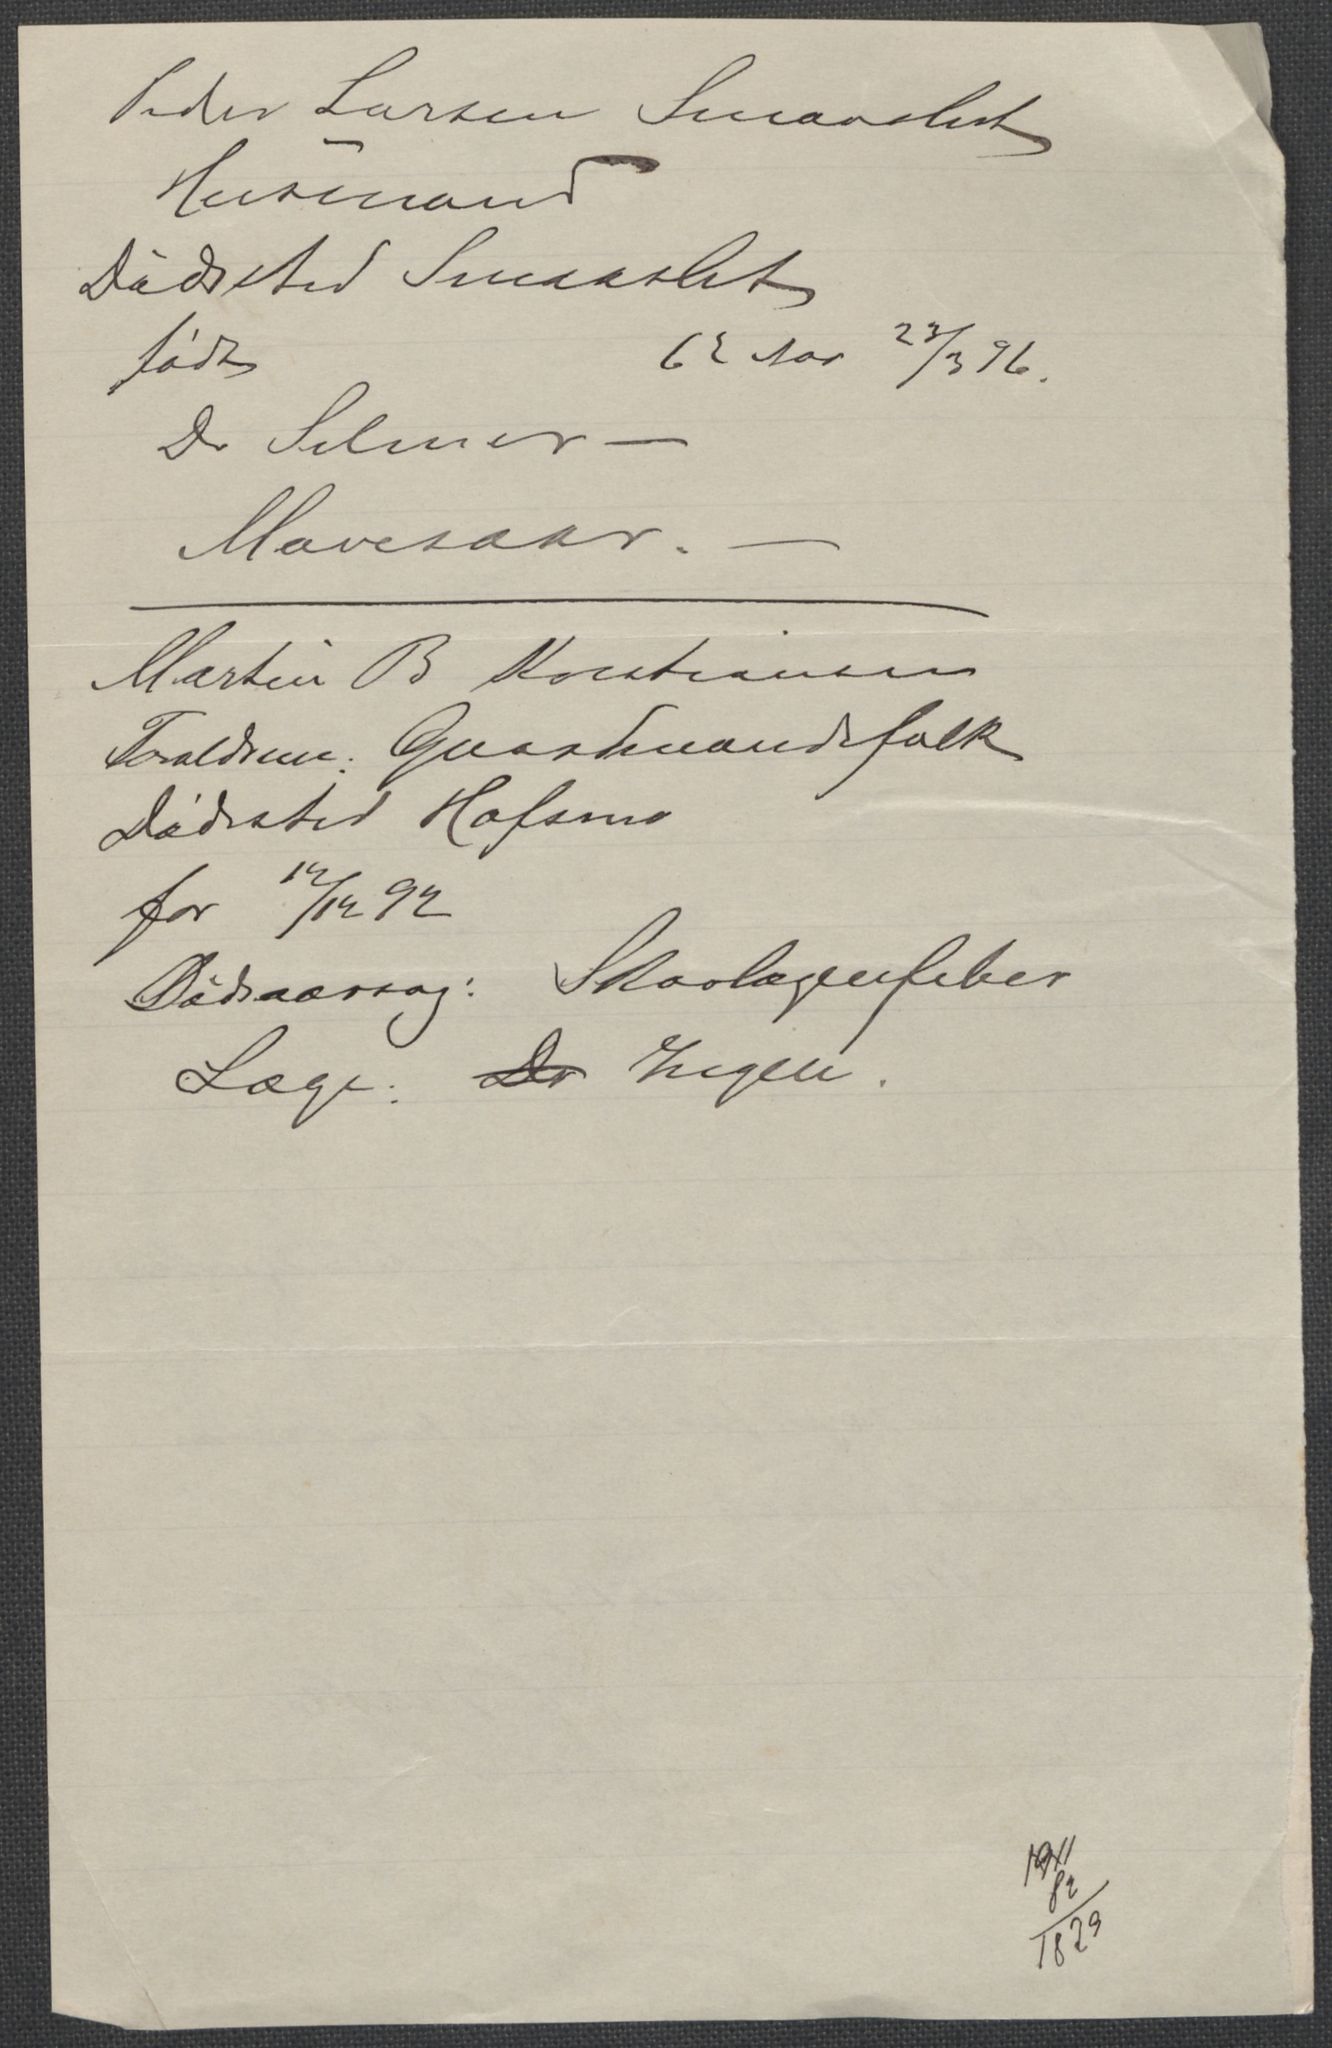 Peder Larsen Smaaslet
Husmand
Dødssted Smaaslet
født 62 Aar 23/3 96.
Dr Selmer —
Mavesaar. —
Martin B Kristiansen
Foraldrene: Gaardmandsfolk
Dødssted Hofsmo
før 12/12 92
Dødsaarsag: Skarlagensfeber
Læge: Dr Ingen.
1911
82
1829